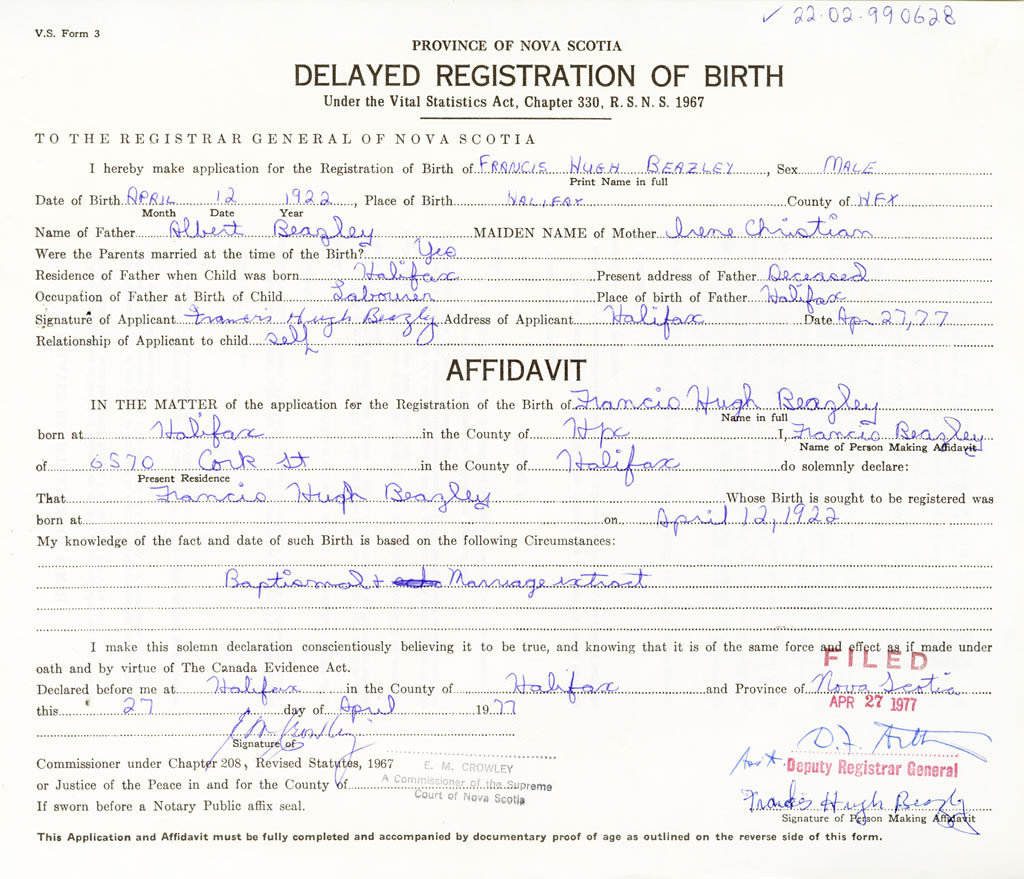 ✓ 22-02-990628
V.S. Form 3
PROVINCE OF NOVA SCOTIA
DELAYED REGISTRATION OF BIRTH
Under the Vital Statistics Act, Chapter 330, R. S. N. S. 1967
TO THE REGISTRAR GENERAL OF NOVA SCOTIA
I hereby make application for the Registration of Birth of FRANCIS HUGH BEAZLEY, Sex MALE
Print Name in full
Date of Birth APRIL 12 1922, Place of Birth HALIFAX County of HFX
Month Date Year
Name of Father Albert Beazley MAIDEN NAME of Mother Irene Christian
Were the Parents married at the time of the Birth? Yes
Residence of Father when Child was born Halifax Present address of Father Deceased
Occupation of Father at Birth of Child Labourer Place of birth of Father Halifax
Signature of Applicant Francis Hugh Beazly Address of Applicant Halifax Date Apr 27, 77
Relationship of Applicant to child self
AFFIDAVIT
IN THE MATTER of the application for the Registration of the Birth of Francis Hugh Beazley
Name in full
born at Halifax in the County of Hfx I, Francis Beazley
Name of Person Making Affidavit
of 6570 Cork St in the County of Halifax do solemnly declare:
Present Residence
That Francis Hugh Beazley Whose Birth is sought to be registered was
born at on April 12, 1922
My knowledge of the fact and date of such Birth is based on the following Circumstances:
Baptismal + Marriage extract
I make this solemn declaration conscientiously believing it to be true, and knowing that it is of the same force and effect as if made under
oath and by virtue of The Canada Evidence Act.
FILED
Declared before me at Halifax in the County of Halifax and Province of Nova Scotia
APR 27 1977
this 27 day of April 1977
E M Crowley
Signature of
Commissioner under Chapter 208, Revised Statutes, 1967
or Justice of the Peace in and for the County of
If sworn before a Notary Public affix seal.
E. M. CROWLEY
A Commissioner of the Supreme
Court of Nova Scotia
Ass't. Deputy Registrar General
Francis Hugh Beazly
Signature of Person Making Affidavit
This Application and Affidavit must be fully completed and accompanied by documentary proof of age as outlined on the reverse side of this form.